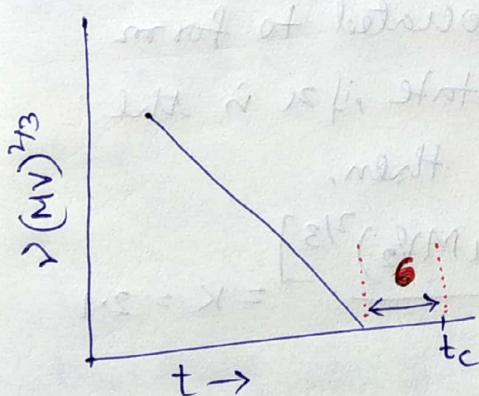 γ(MV)^2/3
6
t_c
t →